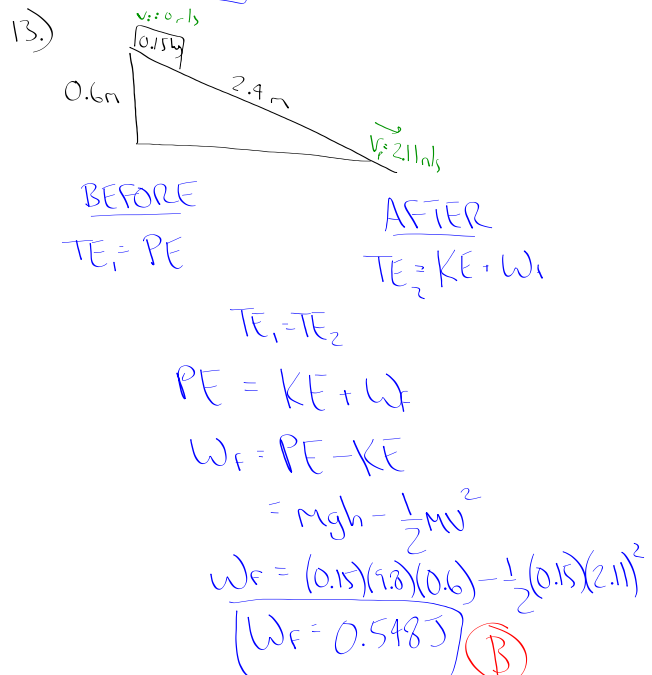 13.)
vᵢ = 0 m/s
0.15kg
0.6m
2.4 m
v_f = 2.11 m/s
BEFORE
AFTER
TE₁ = PE
TE₂ = KE + W_f
TE₁ = TE₂
PE = KE + W_F
W_F = PE - KE
= mgh - 1/2 mv²
W_F = (0.15)(9.8)(0.6) - 1/2 (0.15)(2.11)²
W_F = 0.548 J
B